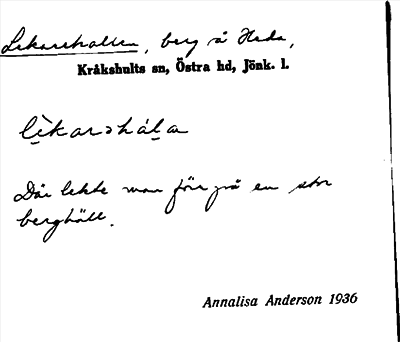 Lekarehallen, berg å Heda,
Kråkshults sn, Östra hd, Jönk. l.
lèkarɔhálạ
Där lekte man förr på en stor
berghäll.
Annalisa Anderson 1936